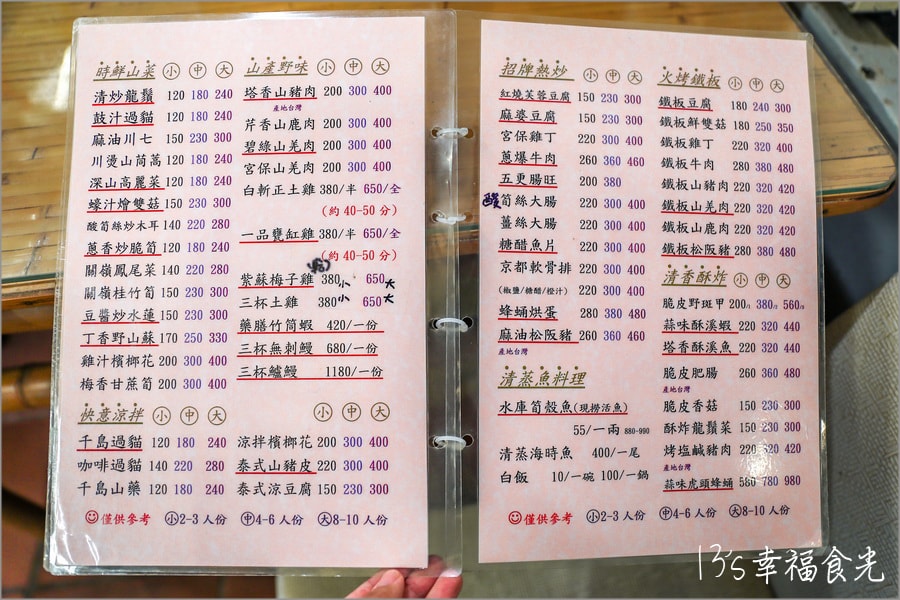 時鮮山菜 小 中 大
清炒龍鬚 120 180 240
鼓汁過貓 120 180 240
麻油川七 150 230 300
川燙山茼蒿 120 180 240
深山高麗菜 120 180 240
蠔汁燴雙菇 150 230 300
酸筍絲炒木耳 140 220 280
蔥香炒脆筍 120 180 240
關嶺鳳尾菜 140 220 280
關嶺桂竹筍 150 230 300
豆醬炒水蓮 150 230 300
丁香野山蘇 170 250 330
雞汁檳榔花 200 300 400
梅香甘蔗筍 200 300 400
山產野味 小 中 大
塔香山豬肉 200 300 400
產地台灣
芹香山鹿肉 200 300 400
碧綠山羌肉 200 300 400
宮保山羌肉 200 300 400
白斬正土雞 380/半 650/全
(約 40-50 分)
一品甕缸雞 380/半 650/全
(約 40-50 分)
紫蘇梅子雞 380小 650大
三杯土雞 380小 650大
藥膳竹筒蝦 420/一份
三杯無刺鰻 680/一份
三杯鱸鰻 1180/一份
快意涼拌 小 中 大
千島過貓 120 180 240
咖啡過貓 140 220 280
千島山藥 120 180 240
小 中 大
涼拌檳榔花 200 300 400
泰式山豬皮 220 300 400
泰式涼豆腐 150 230 300
僅供參考 小2-3 人份 中4-6 人份 大8-10 人份
招牌熱炒 小 中 大
紅燒芙蓉豆腐 150 230 300
麻婆豆腐 150 230 300
宮保雞丁 220 300 400
蔥爆牛肉 260 360 460
五更腸旺 200 380
酸筍絲大腸 220 300 400
薑絲大腸 220 300 400
糖醋魚片 220 300 400
京都軟骨排 220 300 400
(椒鹽/糖醋/橙汁) 220 300 400
蜂蛹烘蛋 280 380 480
麻油松阪豬 260 360 460
產地台灣
清蒸魚料理
水庫筍殼魚(現撈活魚)
55/一兩 880-990
清蒸海時魚 400/一尾
白飯 10/一碗 100/一鍋
火烤鐵板 小 中 大
鐵板豆腐 180 240 300
鐵板鮮雙菇 180 250 350
鐵板雞丁 220 320 400
鐵板牛肉 280 380 480
鐵板山豬肉 220 320 420
鐵板山羌肉 220 320 420
鐵板山鹿肉 220 320 420
鐵板松阪豬 280 380 480
清香酥炸 小 中 大
脆皮野斑甲 200/1 380/2 560/3
蒜味酥溪蝦 220 320 440
塔香酥溪魚 220 320 440
脆皮肥腸 260 360 480
產地台灣
脆皮香菇 150 230 300
酥炸龍鬚菜 150 230 300
烤塩鹹豬肉 220 320 420
產地台灣
蒜味虎頭蜂蛹 580 780 980
僅供參考 小2-3 人份 中4-6 人份 大8-10 人份
13's幸福食光